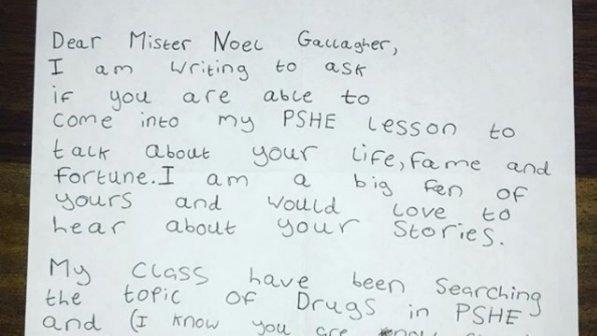 Dear Mister Noel Gallagher,
I am writing to ask
if you are able to
come into my PSHE lesson to
talk about your life, fame and
fortune. I am a big fen of
yours and would love to
hear about your stories.
My class have been searching
the topic of Drugs in PSHE
and (I know you are